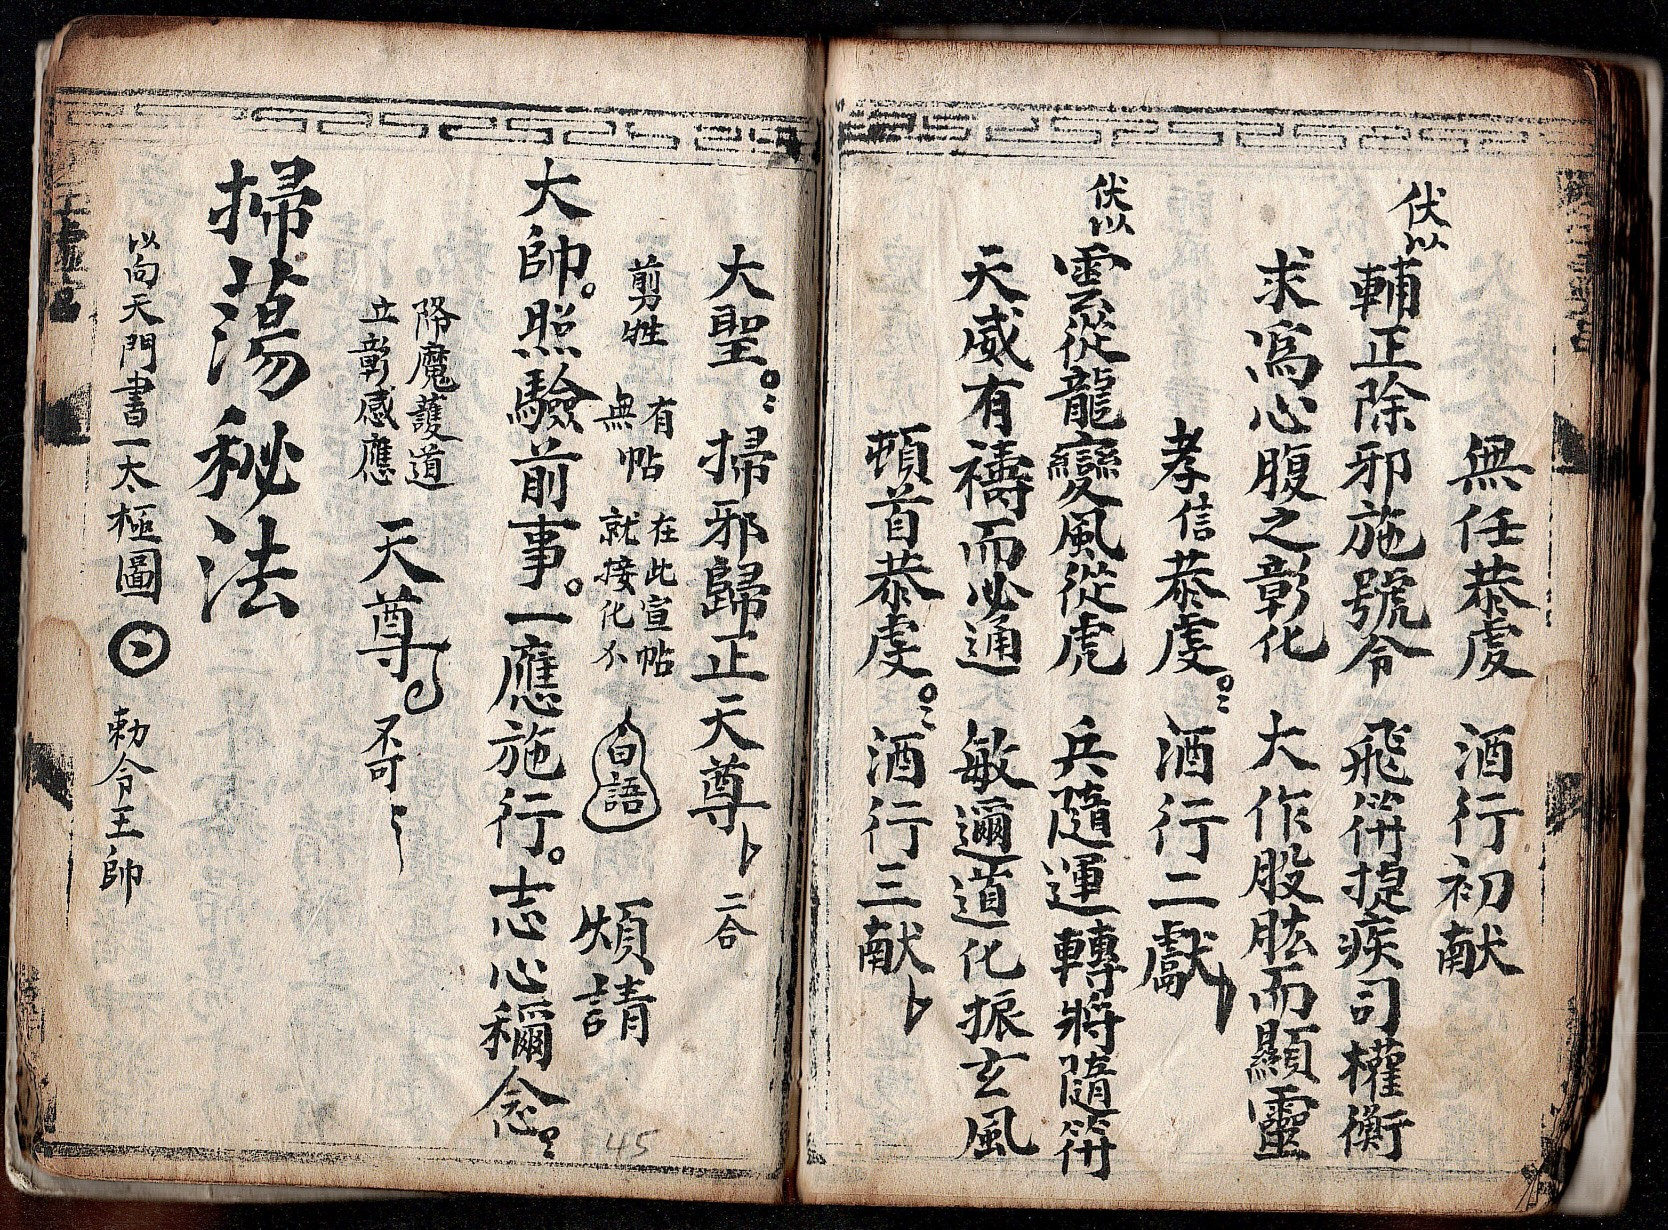 無任恭虔　酒行初献
伏以
輔正除邪施號令　飛符捉疾司權衡
求為心腹之彰化　大作股肱而顯靈
孝信恭虔　酒行二獻
伏以
雲從龍變風從虎　兵隨運轉將隨符
天威有禱而必通　敏邇道化振玄風
頓首恭虔　酒行三献
大聖　掃邪歸正天尊　二合
剪牲　有帖　在此宣帖
無　就接化介　白語　煩請
大帥照驗前事一應施行志心稱念
降魔護道
立彰感應　天尊　不可
掃蕩秘法
以向天門書一太極圖　勅令王帥
45